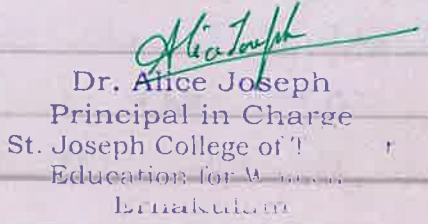 Alice Joseph
Dr. Alice Joseph
Principal in Charge
St. Joseph College of T r
Education for W
Ernakulam